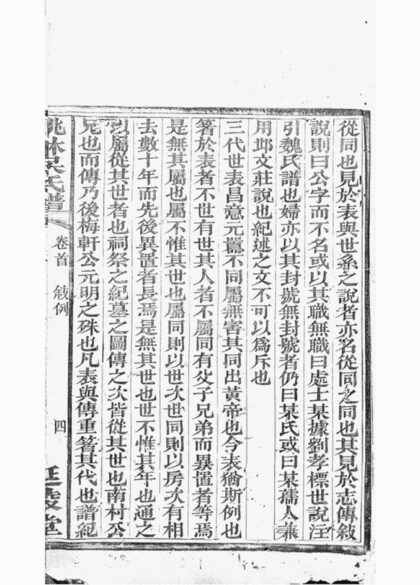 從同也見於表與世系之說者亦名從同之同也其見於志傳敘
說則曰公字而不名或以其職無職曰處士某據劉孝標世說注
引魏氏譜也婦亦以其封號無封號者仍曰某氏或曰某孺人兼
用邱文莊說也紀述之文不可以為斥也
三代世表昌意元囂不同屬無害其同出黃帝也今表猶斯例也
箸於表者不世有世其人者不屬同有父子兄弟而異置者等焉
是無其屬也屬不惟其世也屬同則以世次世同則以房次有相
去數十年而先後異置者長焉是無其世也世不惟其年也通之
以屬從其世者也祠祭之紀墓之圖傳之次皆從其世也南村公
兄也而傳乃後梅軒公元明之殊也凡表與傳重箸其代也譜紀
姚林吳氏譜
卷首
敘例
四
延陵堂